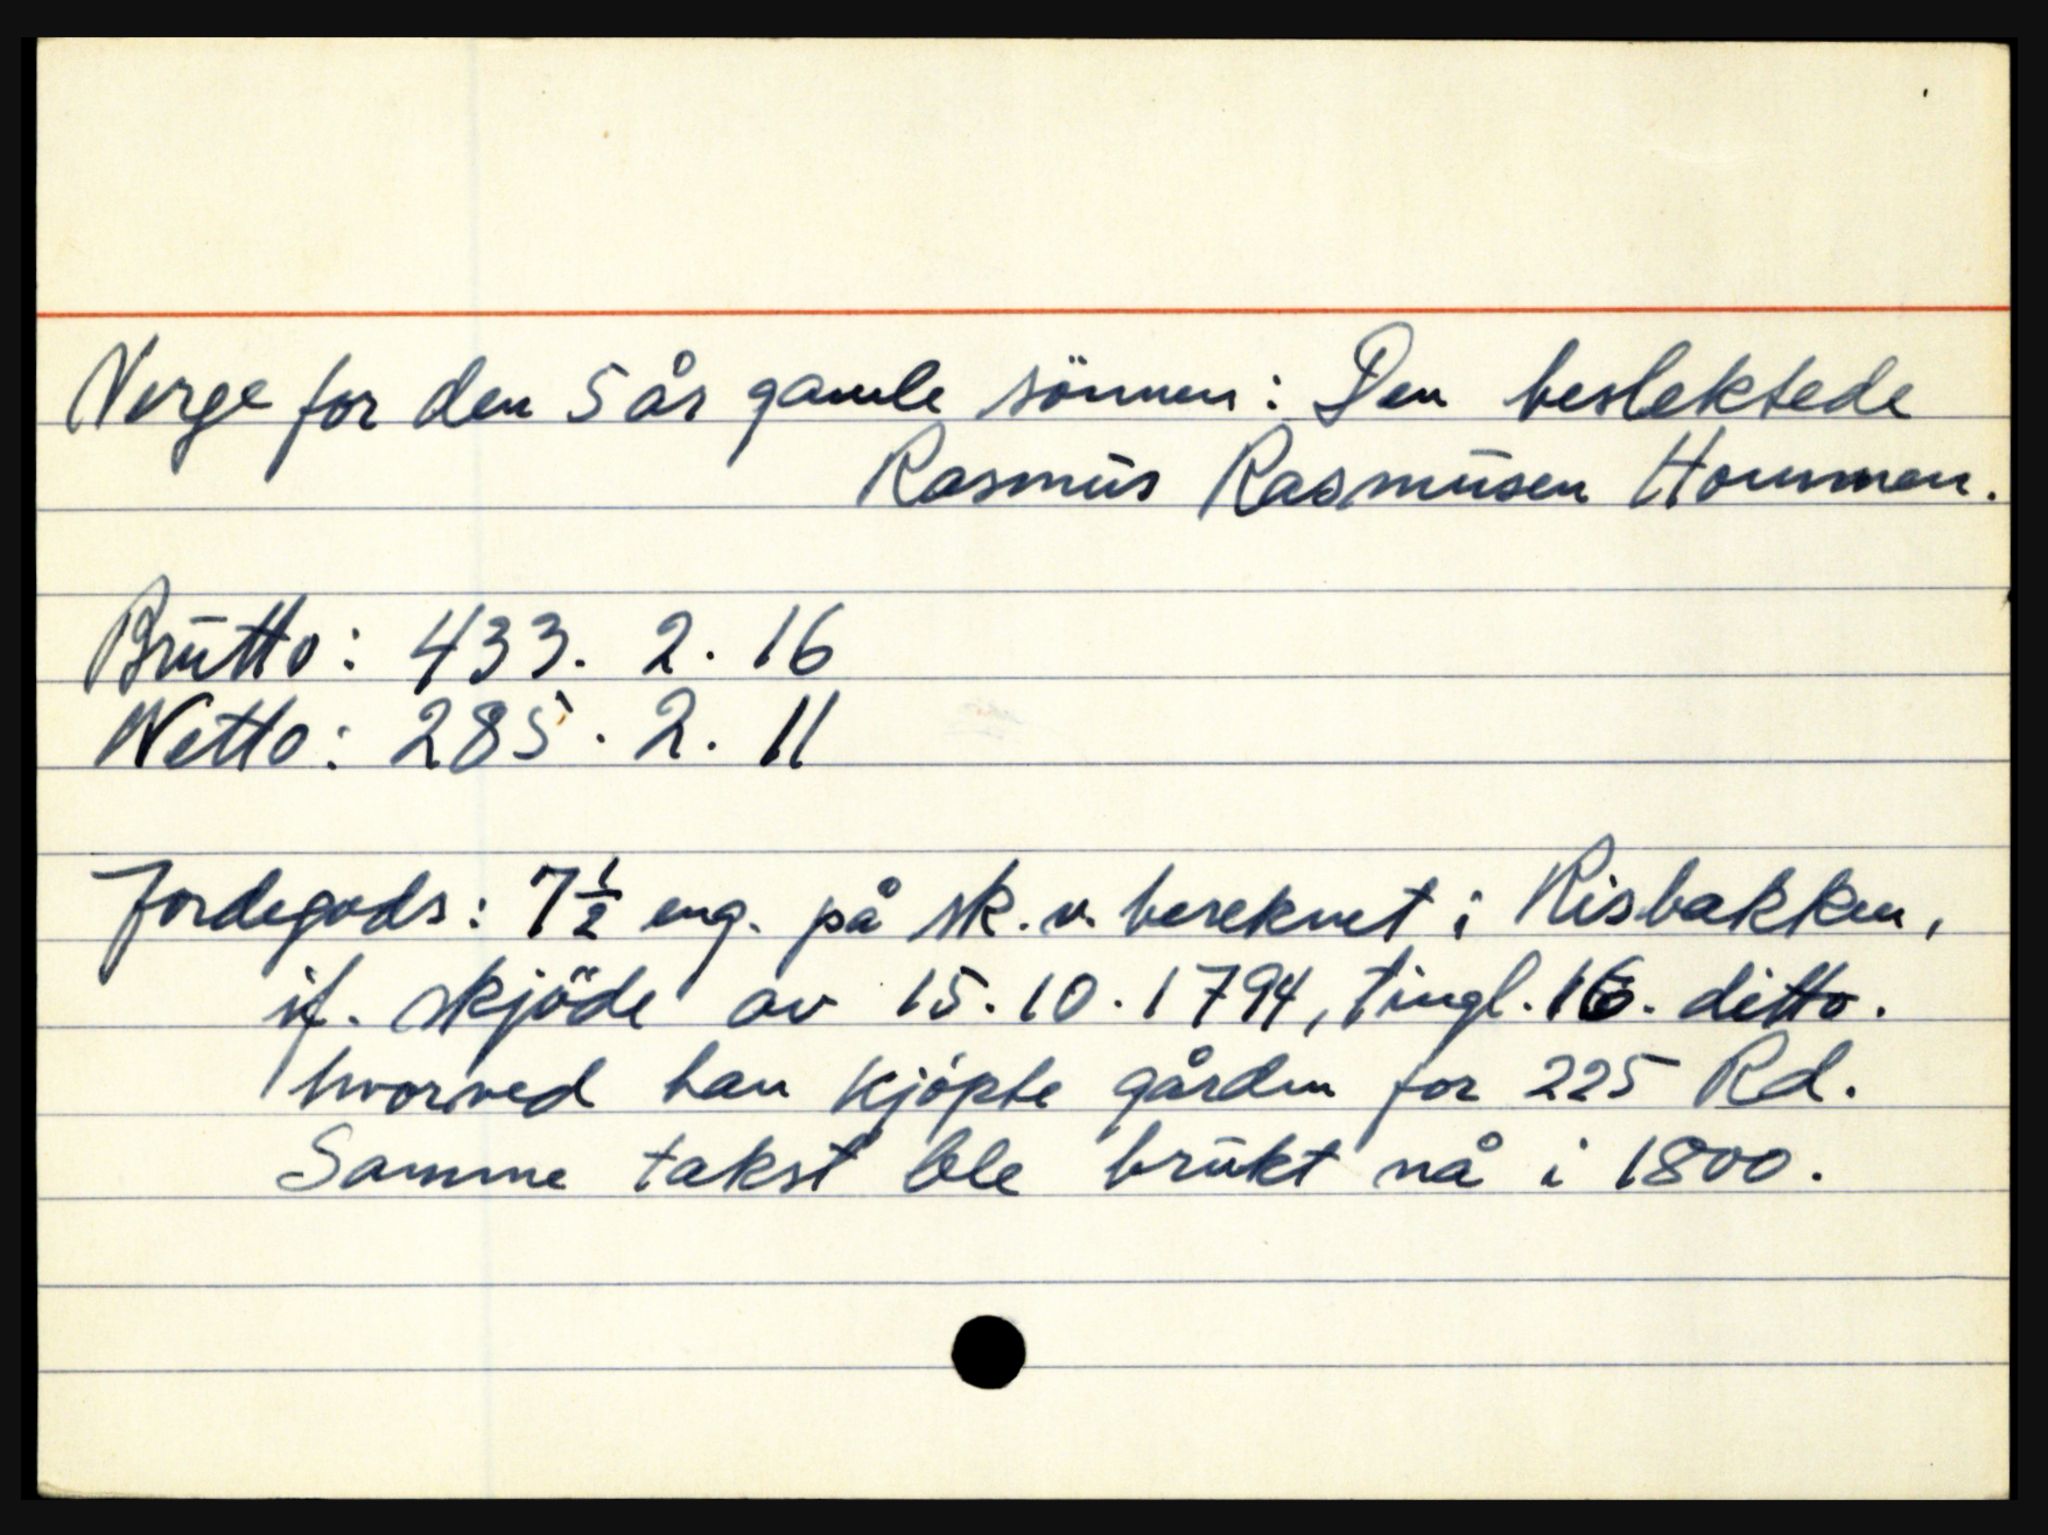 Verge for den 5 år gamle sönnen: Den beslektede
Rasmus Rasmusen Hommen.
Brutto: 433. 2. 16
Netto: 285. 2. 11
Jordegods: 7½ eng. på sk. v. bereknet i Risbakken,
if. skjöde av 15.10.1794, tingl. 16. ditto.
hvorved han kjöpte gården for 225 Rd.
Samme takst ble brukt nå i 1800.